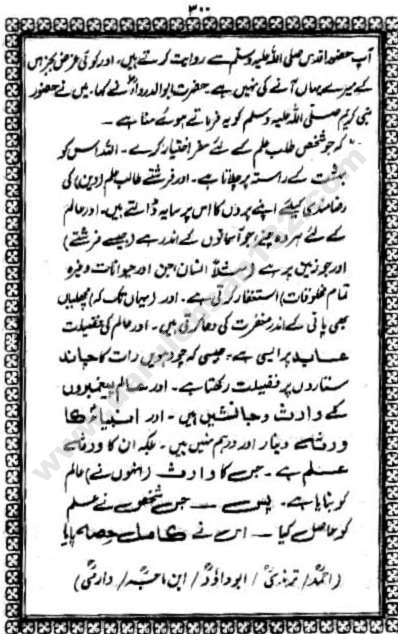 ۳۰۰
آپ حضور اقدس صلی اللہ علیہ وسلم سے روایت کرتے ہیں۔ اور کوئی غرض بجز اس
کے میرے یہاں آنے کی نہیں ہے حضرت ابوالدرداءؓ نے کہا۔ میں نے حضور
نبی کریم صلی اللہ علیہ وسلم کو یہ فرماتے ہوئے سنا ہے۔
"کہ جو شخص طلب علم کے لئے سفر اختیار کرے۔ اللہ اس کو
بہشت کے راستہ پر چلاتا ہے۔ اور فرشتے طالب علم (دین) کی
رضامندی کیلئے اپنے پروں کا اس پر سایہ ڈالتے ہیں۔ اور عالم
کے لئے ہر وہ چیز (جو آسمانوں کے اندر ہے (جیسے فرشتے)
اور جو زمین پر ہے (مثلاً انسان جن اور حیوانات وغیرہ
تمام مخلوقات) استغفار کرتی ہے۔ اور (یہاں تک کہ) مچھلیاں
بھی پانی کے اندر مغفرت کی دعا کرتی ہیں۔ اور عالم کی فضیلت
عابد پر ایسی ہے۔ جیسی کہ چودھویں رات کا چاند
ستاروں پر فضیلت رکھتا ہے۔ اور عالم پیغمبروں
کے وارث و جانشیں ہیں۔ اور انبیاء کا
ورثہ دینار اور درہم نہیں ہیں۔ بلکہ ان کا ورثہ
علم ہے۔ جس کا وارث (انہوں نے) عالم
کو بنایا ہے۔ پس — جس شخص نے علم
کو حاصل کیا — اس نے کامل حصہ پایا
(احمدؒ / ترمذیؒ / ابوداؤدؒ / ابن ماجہؒ / دارمیؒ)